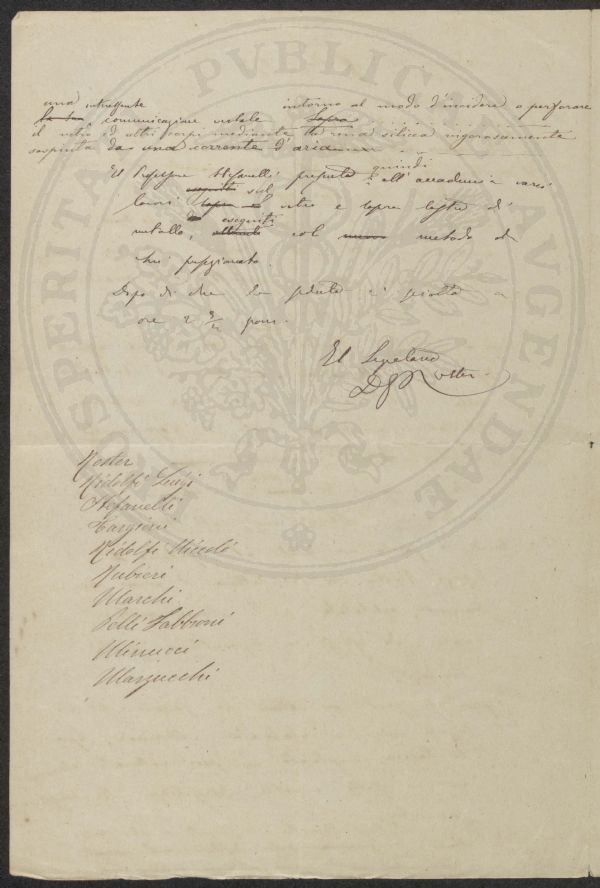 una interessante
la sua comunicazione verbale sopra intorno al modo d'incidere o perforare
il vetro ed altri corpi mediante la rena silicea vigorosamente
sospinta da una corrente d'aria
Il Professore Stefanelli presenta quindi all'accademia vari
lavori eseguiti sul vetro e sopra lastre di
metallo, eseguiti col nuovo metodo da
lui perfezionato.
Dopo di che la seduta è sciolta a
ore 2 pom.
Il Segretario
D G Roster
Roster
Ridolfi Luigi
Stefanelli
Targioni
Ridolfi Niccolò
Rubieri
Marchi
Pelli Fabbroni
Minucci
Marzucchi
PROSPERITATI PVBLICAE AVGENDAE